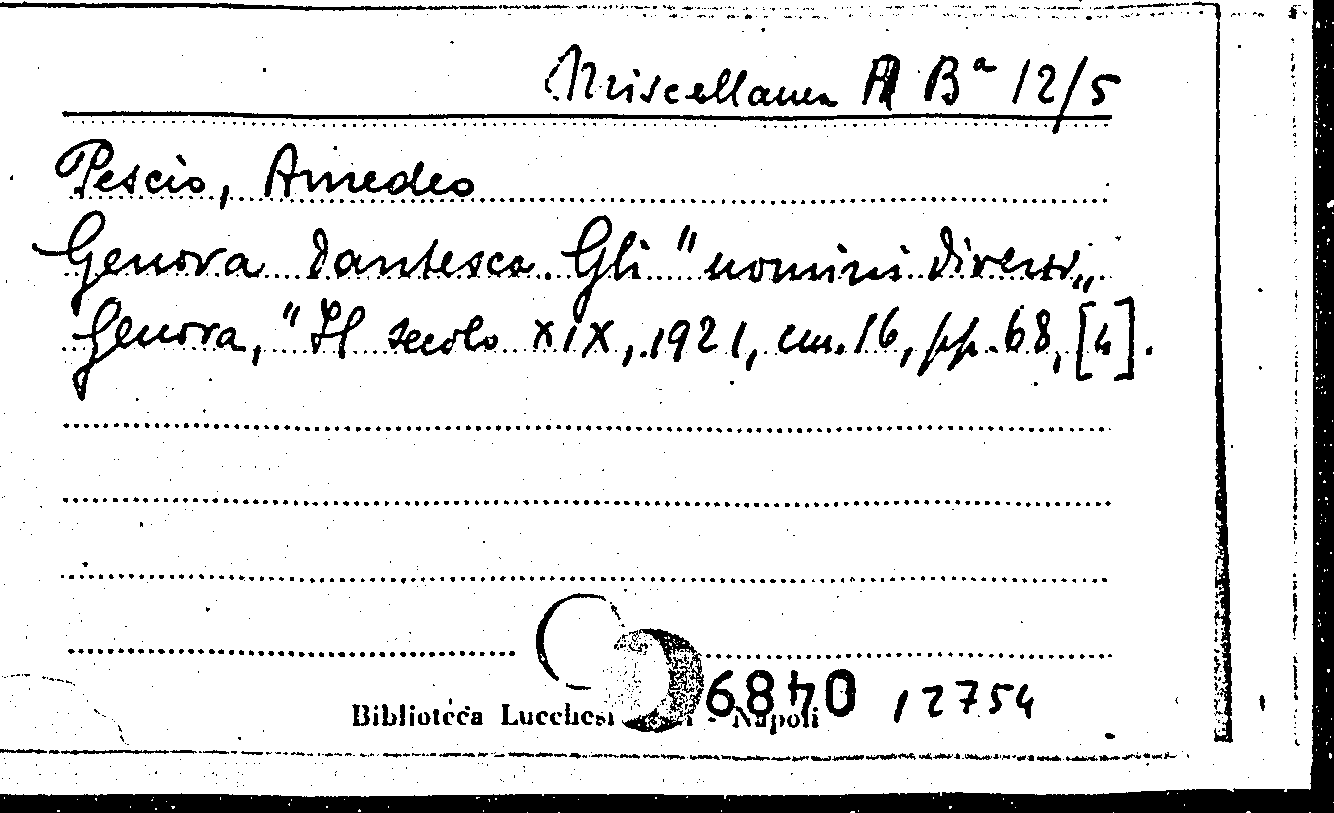 Miscellanea A Bª 12/5
Pescio, Amedeo
Genova dantesca. Gli "uomini diversi„
Genova, "Il secolo XIX, 1921, cm. 16, pp. 68, [4].
04896 12754
Biblioteca Lucchesi - Napoli